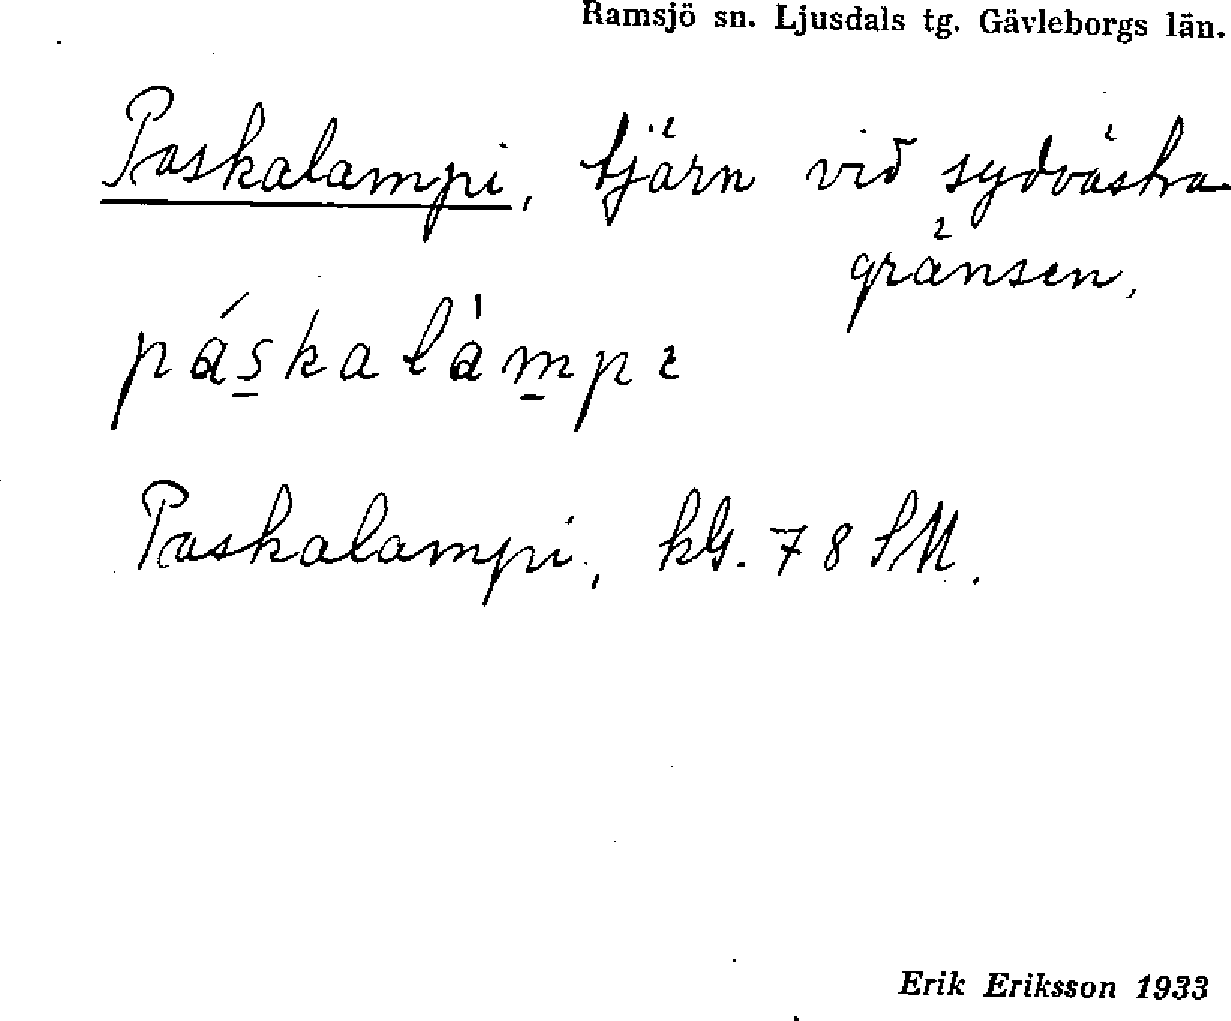 Ramsjö sn. Ljusdals tg. Gävleborgs län.
Paskalampi, tjärn vid sydvästra
gränsen.
páskalàmpɩ
Paskalampi, kbl. 78 SM.
Erik Eriksson 1933